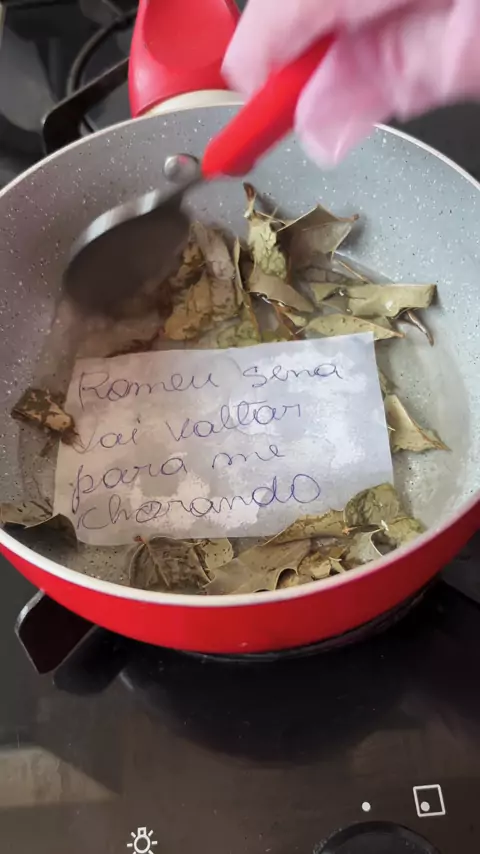 Romeu sena
vai valtar
para me
chorando